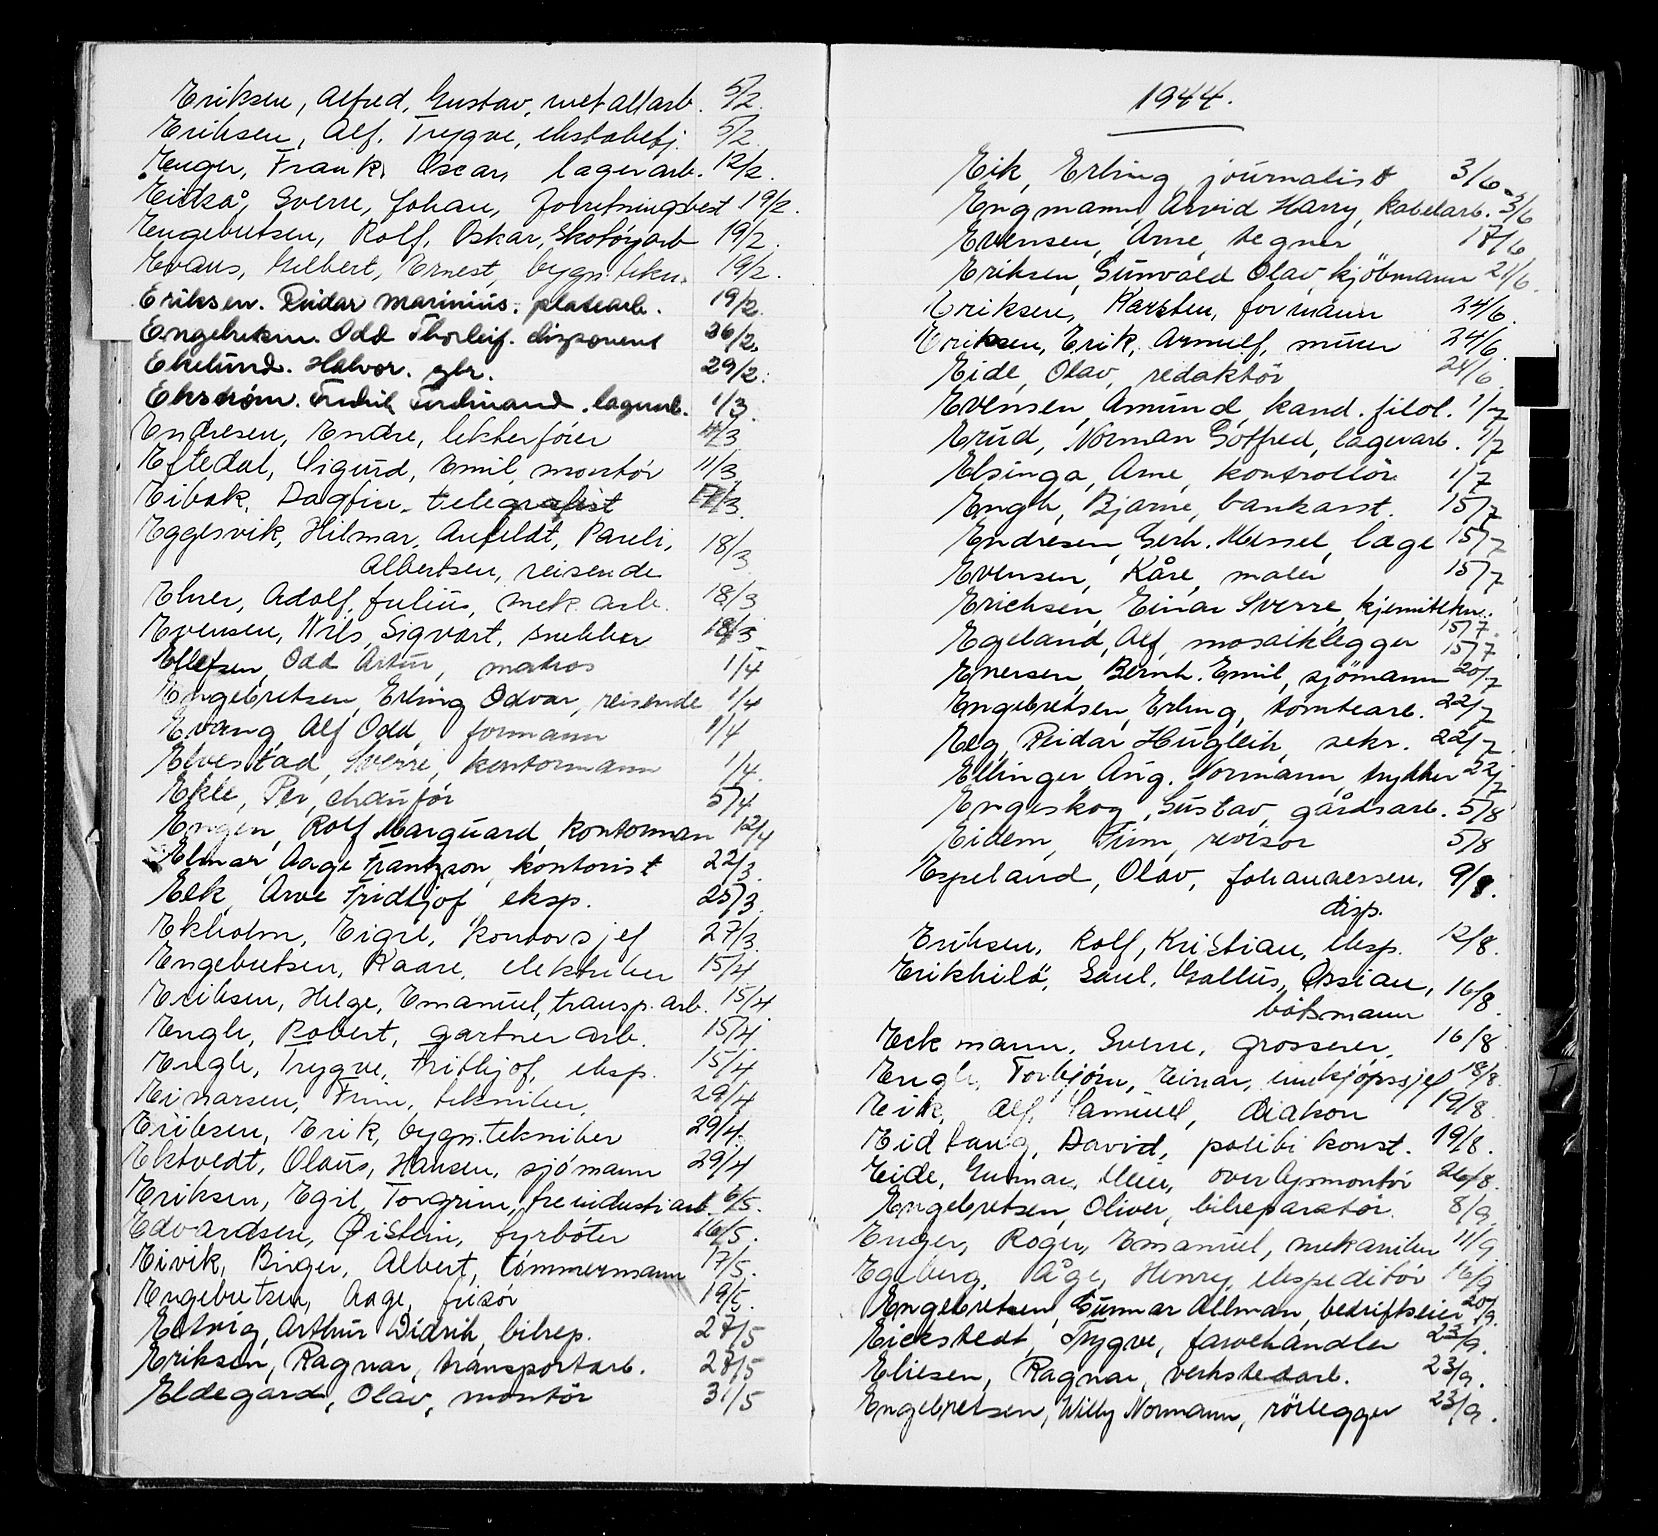 Eriksen, Alfred, Gustav, metallarb. 5/2.
Eriksen, Alf. Trygve, 5/2.
Enger, Frank, Oscar, lagerarb. 12/2.
Eidså, Sverre, Johan, forretningsbest 19/2.
Engebretsen, Rolf, Oskar, Skotøyarb 19/2.
Evans, Gilbert, Ernest, bygn.tekn. 19/2.
Eriksen. Reidar Marinius. platearb. 19/2.
Engebretsen. Odd Thorleif. disponent 26/2.
Ekelund. Halvor. gbr. 29/2.
Ekstrøm. Fredrik Ferdinand. lagerarb. 1/3.
Endresen, Endre, lekterfører 4/3
Eftedal, Sigurd, Emil, montør 11/3
Eibak, Dagfin, telegrafist 17/3.
Eggesvik, Hilmar, Anfeldt, Pareli, 18/3
Albertsen, reisende
Elner, Adolf, Julius, mek. arb. 18/3
Evensen, Nils, Sigvart, snekker 18/3
Ellefsen, Odd Artur, matros 1/4
Engebretsen, Erling Odvar, reisende 1/4
Evang, Alf Odd, formann 1/4
Elvestad, Sverre, kontormann 1/4.
Ekle, Per, chaufør 5/4
Engen, Rolf Marquard, kontorman 12/4
Elmar, Aage Frantzson, kontorist 22/3.
Elk, Arve Fridtjof, eksp. 25/3.
Ekholm, Eigil, kontorsjef 27/3.
Engebretsen, Kaare, elektriker 15/4
Eriksen, Helge, Emanuel, transp. arb. 15/4.
Engh, Robert, gartnerarb. 15/4
Engh, Trygve, Frithjof, eksp. 15/4
Einarsen, Finn, tekniker, 29/4
Eriksen, Erik, bygn.tekniker 29/4.
Ektvedt, Olaus, Hansen, sjømann 29/4
Eriksen, Egil, Torgrim, 6/5.
Edvardsen, Øistein, fyrbøter 16/5.
Eivik, Birger, Albert, tømmermann 17/5.
Engebretsen, Aage, frisør 19/5.
Edvig, Arthur Didrik, bilrep. 27/5
Eriksen, Ragnar, transportarb. 27/5
Eldegard, Olav, montør 31/5
1944.
Eik, Erling journalist 3/6.
Engmann, Arvid Harry, kabelarb. 3/6
Evensen, Arne, tegner 17/6
Eriksen, Gunvald Olav, kjøbmann 21/6.
Eriksen, Karsten, formann 24/6.
Eriksen, Erik, Arnulf, murer 24/6.
Eide, Olav, redaktør 24/6.
Evensen, Amund, kand. filol. 1/7
Erud, Norman Gotfred, lagerarb. 1/7
Elsinga, Arne, kontrollør 1/7
Engh, Bjarne, bankasst. 15/7
Endresen, Gerh. Wessel, læge 15/7
Evensen, Kåre, maler 15/7
Erichsen, Einar Sverre, kjemitekn. 15/7.
Egeland, Alf, mosaiklegger 15/7
Enersen, Bernh. Emil, sjømann 20/7
Engebretsen, Erling, tomtearb. 22/7
Elg, Reidar Hugleik, sekr. 22/7
Ellinger, Aug. Normann, trykker 22/7
Engeskog, Gustav, gårdsarb. 5/8
Eidem, Finn, revisor 5/8
Espeland, Olav, Johannessen, 9/8.
disp.
Eriksen, Rolf, Kristian, eksp. 12/8.
Erikhilä, Gael, Gallus, Ossian, 16/8.
båtsmann
Eckmann, Sverre, grosserer, 16/8.
Engh, Torbjørn, Einar, innkjøpssjef 18/8.
Eik, Alf, Samuel, diakon 19/8.
Eidhaug, David, politikonst. 19/8.
Eide, Gunnar, 26/8.
Engebretsen, Oliver, bilreparatør. 8/9.
Enger, Roger, Emanuel, mekaniker 11/9
Egeberg, Åge, Henry, ekspeditør 16/9
Engebretsen, Gunnar Allman, bedriftseier 20/9.
Eickstedt, Trygve, farvehandler 23/9.
Eliesen, Ragnar, verkstedarb. 23/9.
Engebretsen, Willy Normann, rørlegger 23/9.